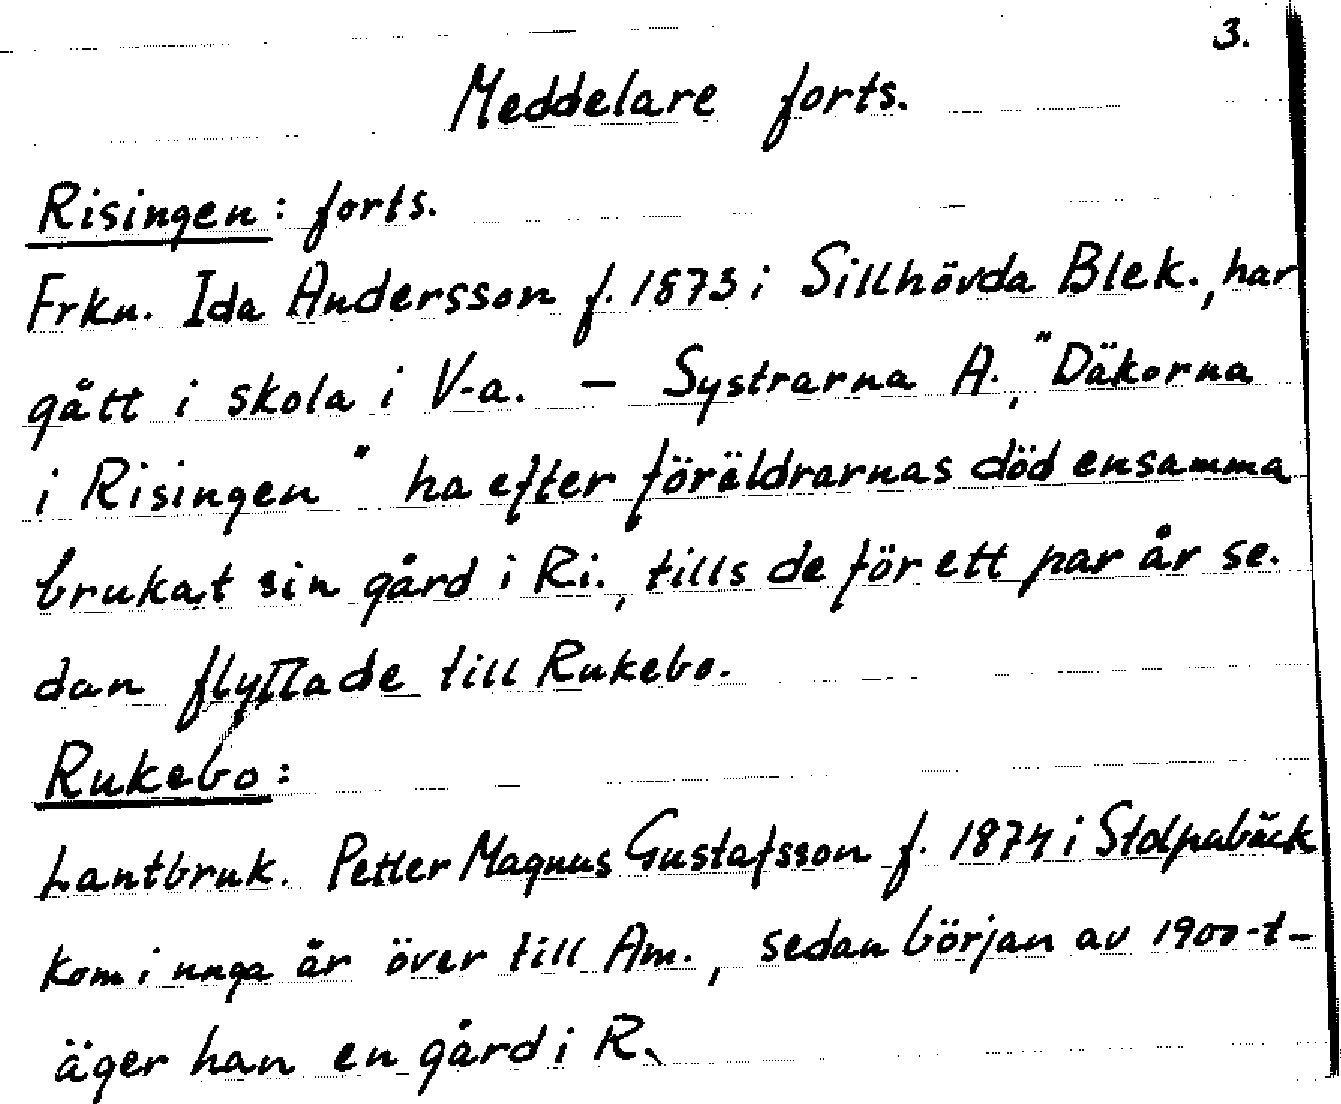 3.
Meddelare forts.
Risingen: forts.
Frkn. Ida Andersson f. 1873 i Sillhövda Blek., har
gått i skola i V-a. — Systrarna A., "Däkorna
i Risingen" ha efter föräldrarnas död ensamma
brukat sin gård i Ri., tills de för ett par år se.
dan flyttade till Rukebo.
Rukebo:
Lantbruk. Petter Magnus Gustafsson f. 1874 i Stolpabäck
kom i unga år över till Am., sedan början av 1900-t-
äger han en gård i R.